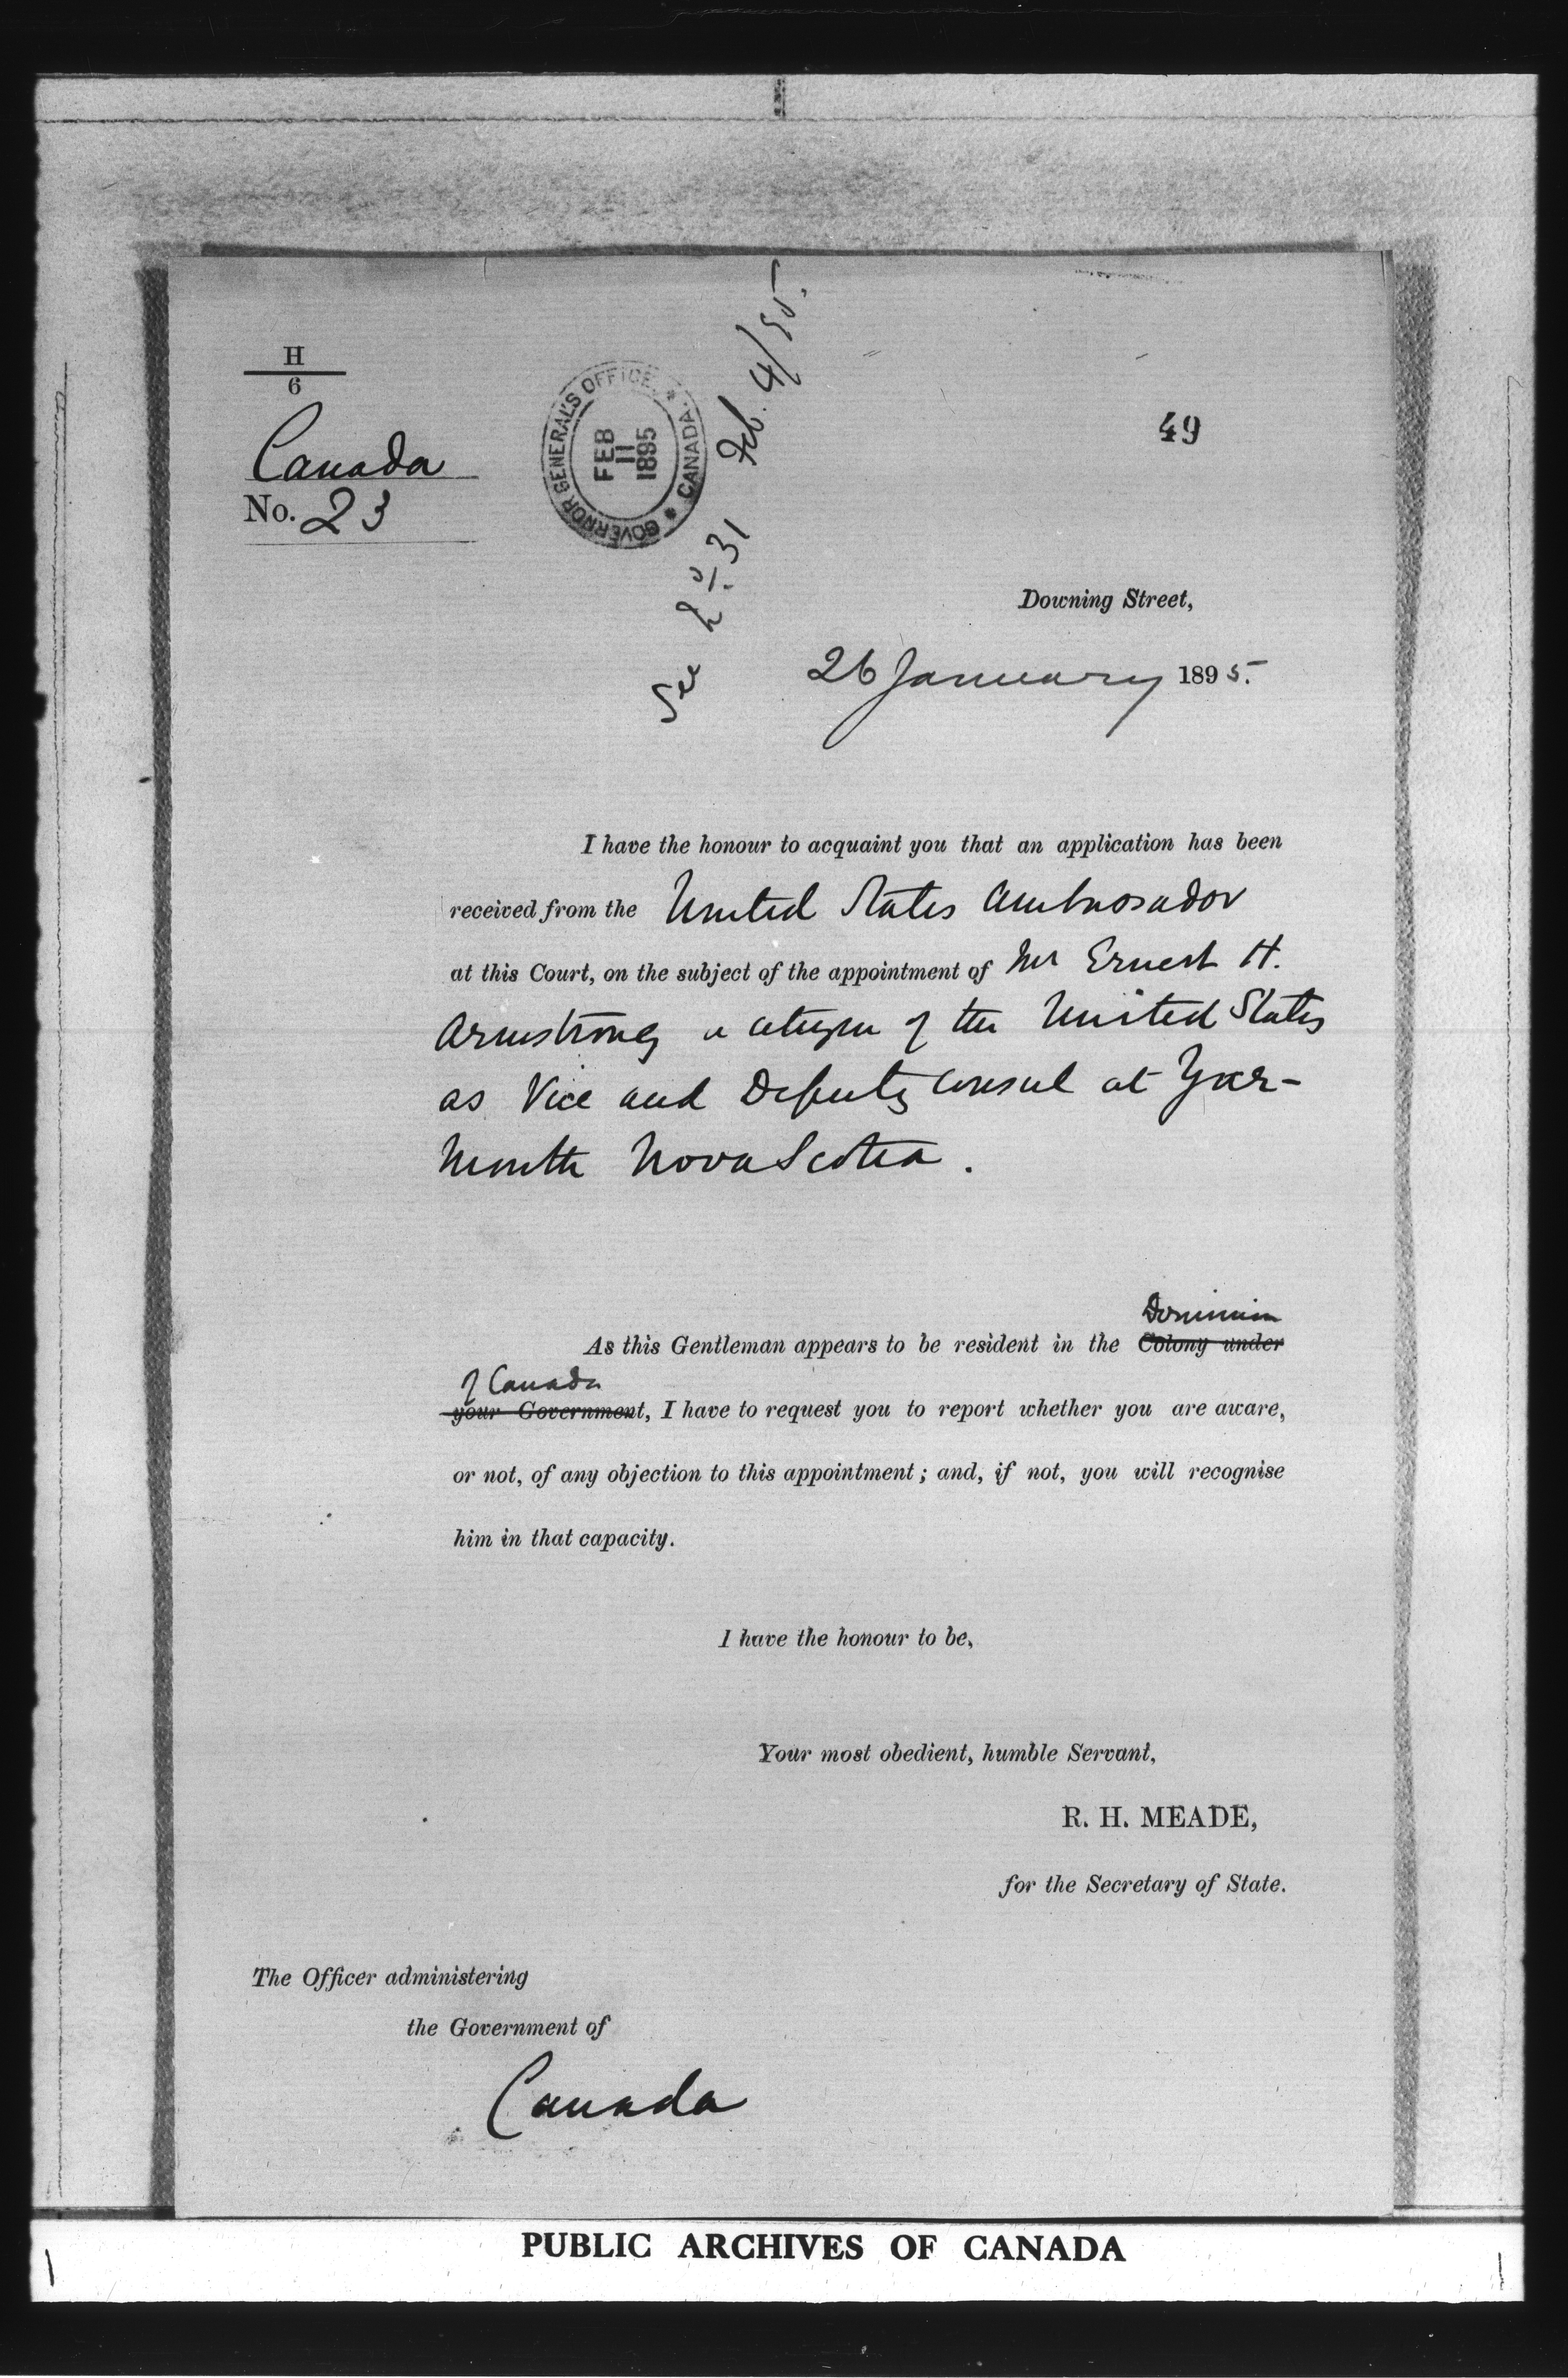 H
6
Canada
No. 23
GOVERNOR GENERAL'S OFFICE. * CANADA. *
FEB
11
1895
See No. 31 Feb. 4/95.
49
Downing Street,
26 January 1895.
I have the honour to acquaint you that an application has been
received from the United States Ambassador
at this Court, on the subject of the appointment of Mr Ernest H.
Armstrong a citizen of the United States
as Vice and Deputy Consul at Yar-
mouth Nova Scotia.
Dominion
As this Gentleman appears to be resident in the Colony under
of Canada
your Government, I have to request you to report whether you are aware,
or not, of any objection to this appointment; and, if not, you will recognise
him in that capacity.
I have the honour to be,
Your most obedient, humble Servant,
R. H. MEADE,
for the Secretary of State.
The Officer administering
the Government of
Canada
PUBLIC ARCHIVES OF CANADA